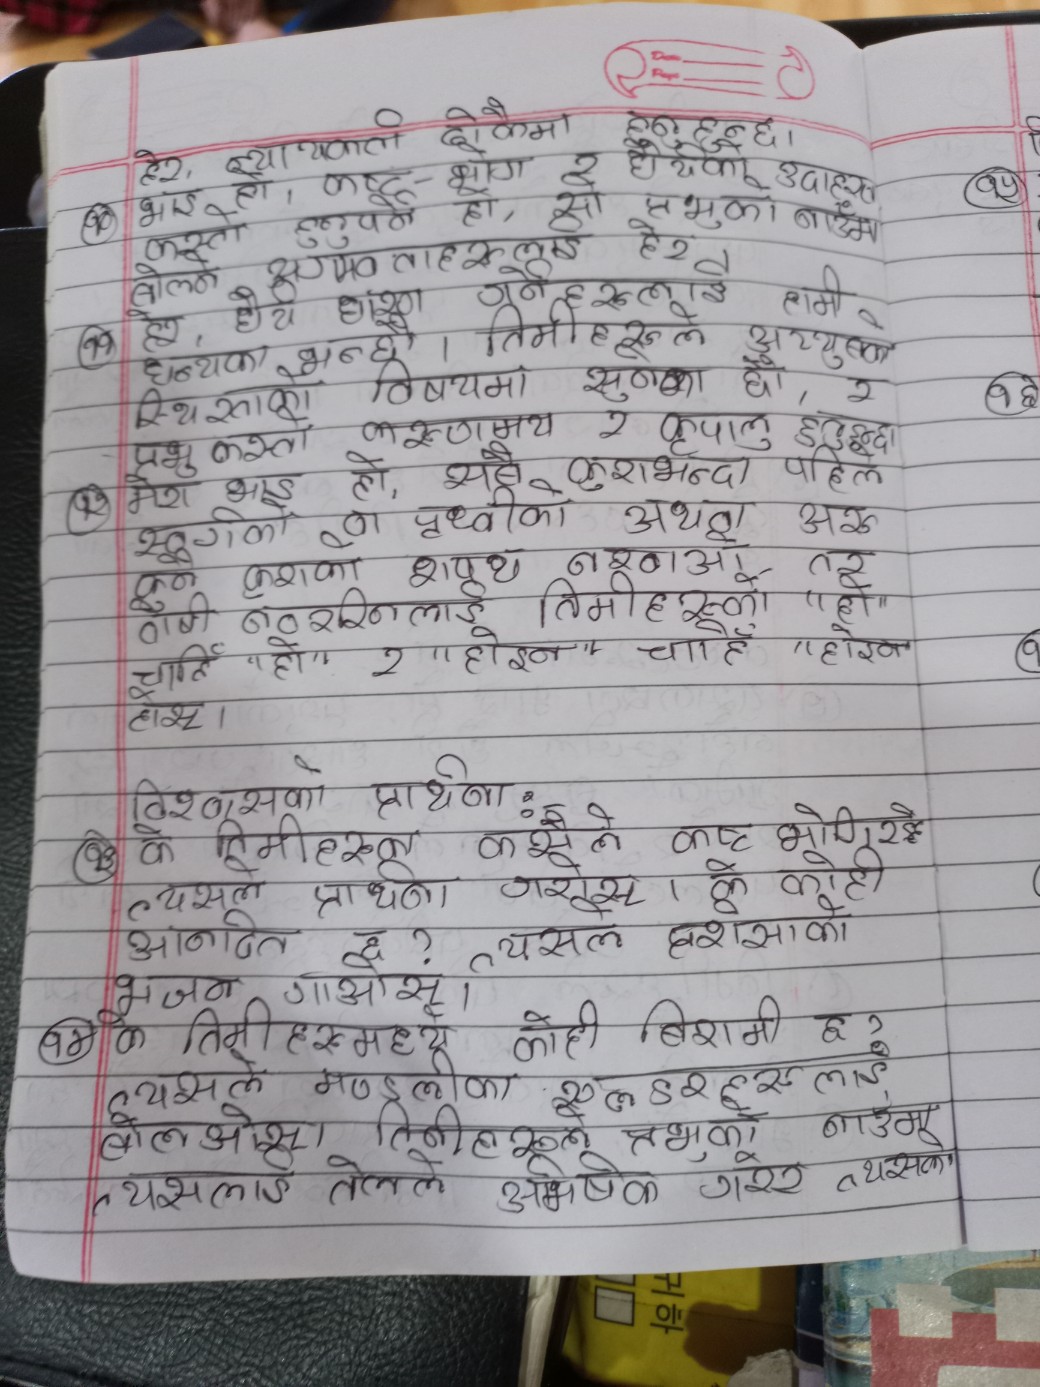 Date
Page
हेर, न्यायकर्ता ढोकैमा हुनुहुन्छ।
१० भाइ हो, कष्ट-भोग र धैर्यको उदाहरण
कस्तो हुनुपर्ने हो, सो प्रभुको नाउँमा
बोल्ने अगमवक्ताहरूलाई हेर।
११ हेर, धैर्य धारण गर्नेहरूलाई हामी
धन्यका भन्छौं। तिमीहरूले अय्यूबको
स्थिरताको विषयमा सुनेका छौ, र
प्रभु कस्तो करुणामय र कृपालु हुनुहुन्छ।
१२ मेरा भाइ हो, सबै कुराभन्दा पहिले
स्वर्गको वा पृथ्वीको अथवा अरू
कुनै कुराको शपथ नखाओ, तर
दोषी नठहरिनलाई तिमीहरूको "हो"
चाहिँ "हो" र "होइन" चाहिँ "होइन"
होस्।
विश्वासको प्रार्थना :
१३ के तिमीहरूमा कसैले कष्ट भोगिरहेछ?
त्यसले प्रार्थना गरोस्। के कोही
आनन्दित छ? त्यसले प्रशंसाको
भजन गाओस्।
१४ के तिमीहरूमध्ये कोही बिरामी छ?
त्यसले मण्डलीका एल्डरहरूलाई
बोलाओस्। तिनीहरूले प्रभुको नाउँमा
त्यसलाई तेलले अभिषेक गरेर त्यसको
१५
१६